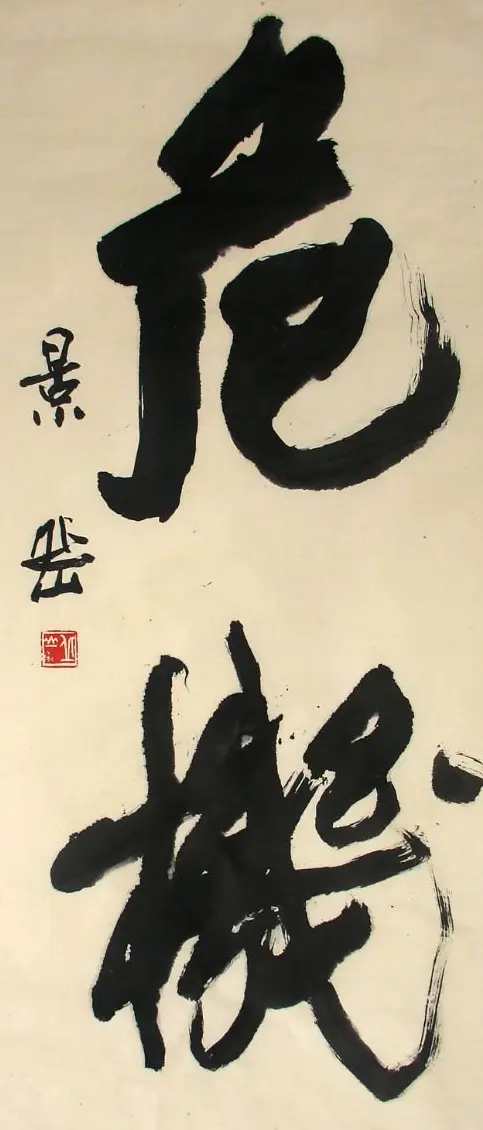 危機
景岳